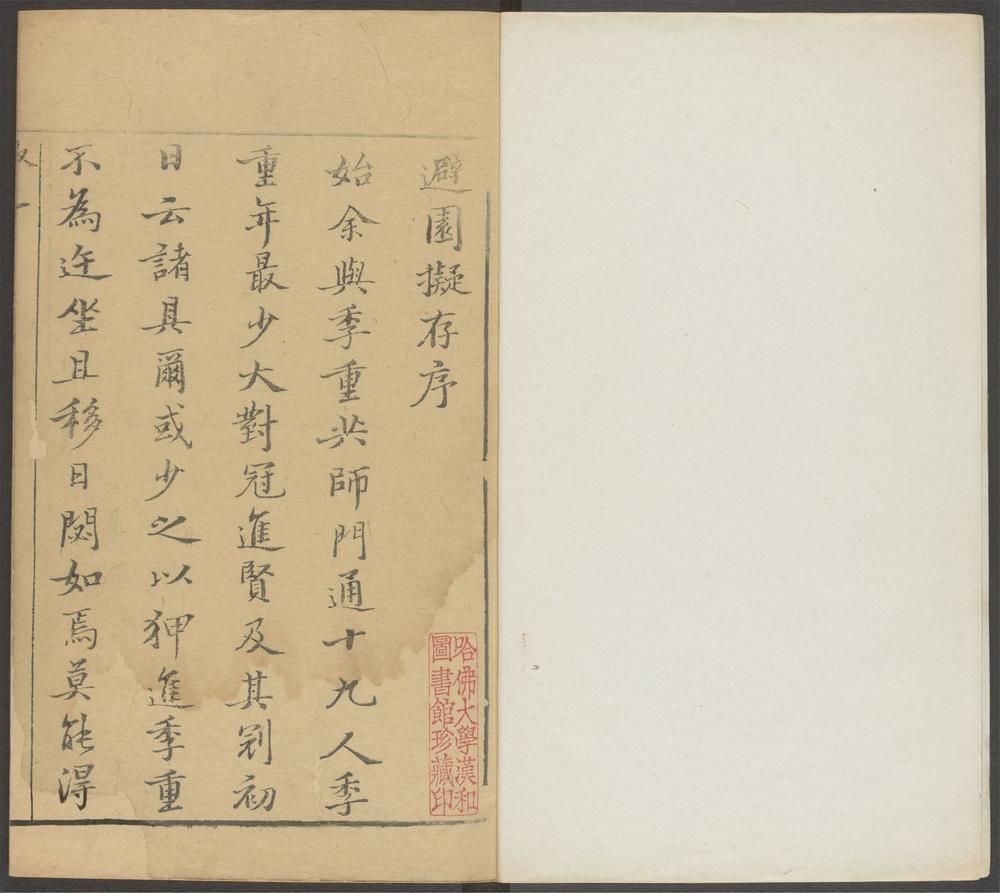 避園擬存序
始余與季重共師門通十九人季
重年最少大對冠進賢及其剖初
日云諸具爾或少之以狎進季重
不為迕坐且移日閼如焉莫能得
哈佛大學漢和
圖書館珍藏印